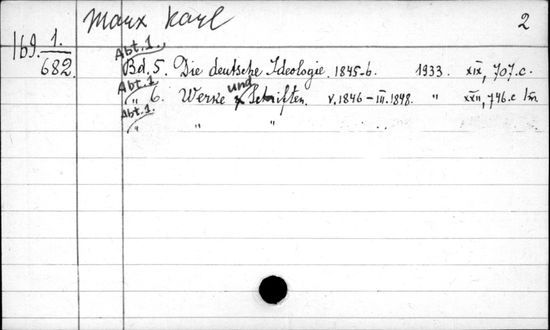 Marx Karl 2
169. 1. Abt. 1.
682. Bd. 5. Die deutsche Ideologie. 1845-6. 1933. XIX, 707.c.
Abt. 1
„ 6. Werke und Schriften. V.1846-III.1848. „ XXII, 746.c 1m.
Abt. 1.
„ „ „